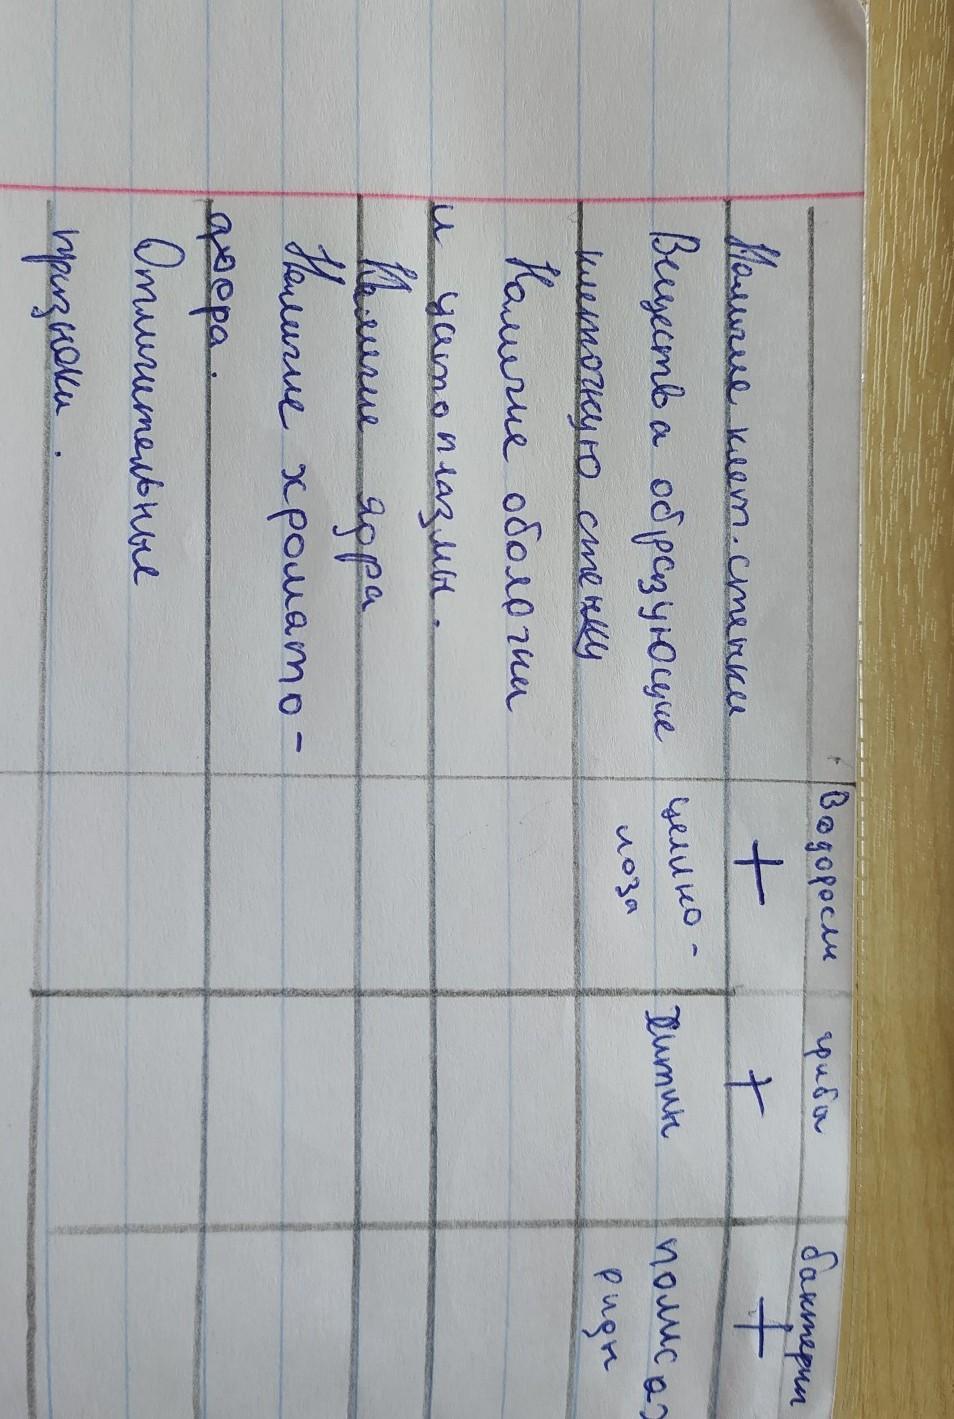 Водоросли гриба бактерии
Наличие клет. стенки + + +
Вещества образующие
клеточную стенку
целлю-
лоза
Хитин
полисах
риды
Наличие оболочки
и цитоплазмы.
Наличие ядра
Наличие хромато-
фора.
Отличительные
признаки.